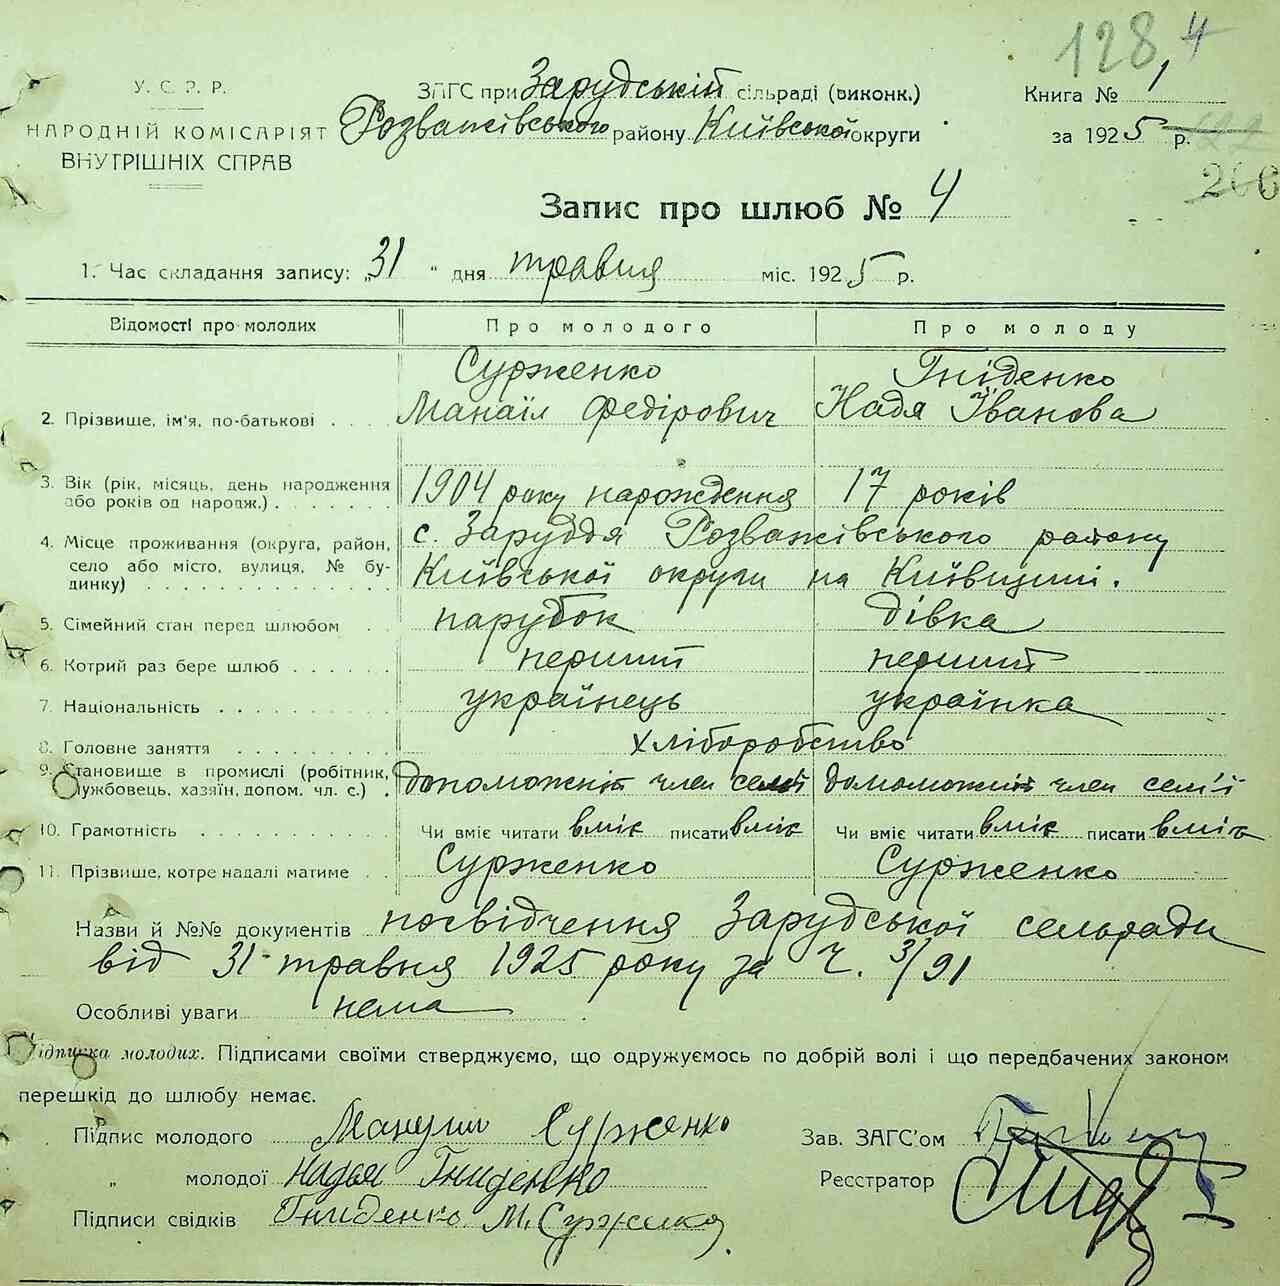 128 4
У. С. Р. Р.
НАРОДНІЙ КОМІСАРІЯТ
ВНУТРІШНІХ СПРАВ
ЗАГС при Зарудській сільраді (виконк.)
Розважівського району Київської округи
Книга № 1
за 1925 р.
206
Запис про шлюб № 4
1. Час складання запису: „31 " дня травня міс. 1925 р.
Відомості про молодих Про молодого Про молоду
Сурженко Гніденко
2. Прізвище, ім'я, по-батькові Манаіл Федірович Надя Іванова
3. Вік (рік, місяць, день народження або років од народж.) 1904 року нарождення 17 років
4. Місце проживання (округа, район, с. Заруддя Розважівського району
село або місто, вулиця, № будинку) Київської округи на Київщині.
5. Сімейний стан перед шлюбом парубок дівка
6. Котрий раз бере шлюб перший перший
7. Національність українець українка
8. Головне заняття хліборобство
9. Становище в промислі (робітник, службовець, хазяїн, допом. чл. с.) допоможній член семї допоможній член сем'ї
10. Грамотність Чи вміє читати вміє писати вміє Чи вміє читати вміє писати вміє
11. Прізвище, котре надалі матиме Сурженко Сурженко
Назви й №№ документів посвідчення Зарудської сельради
від 31 травня 1925 року за ч. 3/91
Особливі уваги нема
Підписка молодих. Підписами своїми стверджуємо, що одружуємось по добрій волі і що передбачених законом
перешкід до шлюбу немає.
Підпис молодого Сурженко
„ молодої Надья Гниденко
Підписи свідків Гниденко М. Сурженко
Зав. ЗАГС'ом
Реєстратор